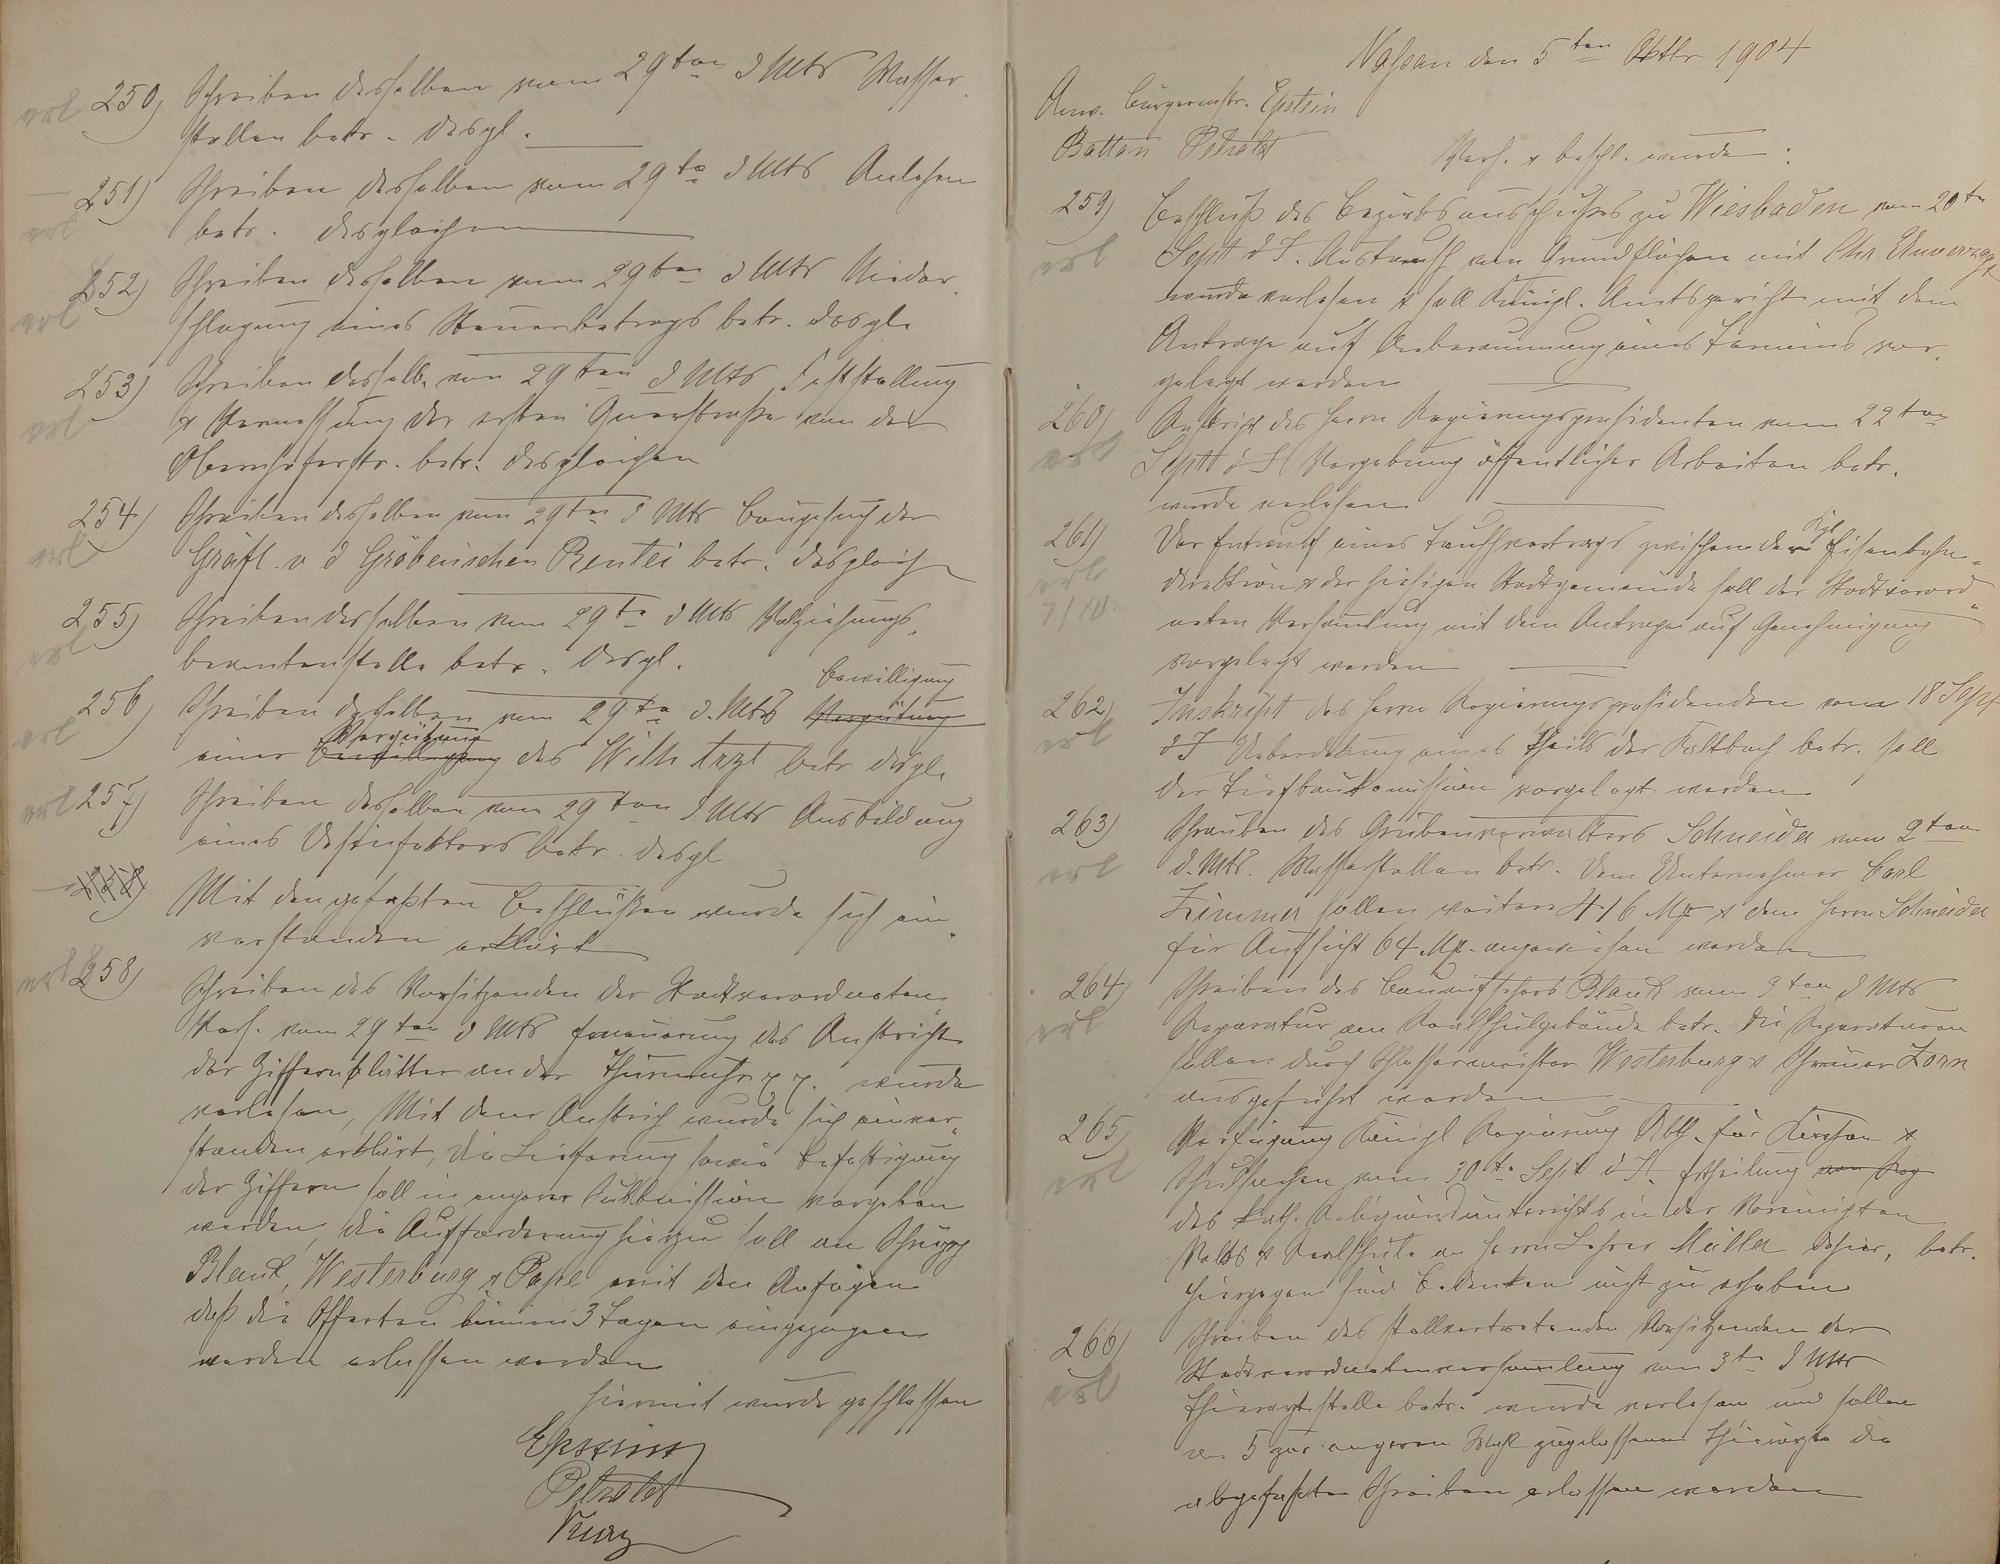 250) Schreiben desselben vom 29ten d Mts Wasser-
stollen betr. desgl.
251) Schreiben desselben vom 29ten d Mts Anlehen
betr. desgleichen
252) Schreiben desselben vom 29ten d Mts Nieder-
schlagung eines Steuerbetrags betr. desgl.
253) Schreiben desselb. vom 29ten d Mts Feststellung
& Vermessung der ersten Querstraße von der
Obernhoferstr. betr. desgleichen
254) Schreiben desselben vom 29ten d Mts Baugesuch der
Gräfl. v d Gröbenschen Rentei betr. desgleich
255) Schreiben desselben vom 29te d Mts Vollziehungs-
beamtenstelle betr. desgl.
Bewilligung
256) Schreiben desselben vom 29te d. Mts Vergütung
Vergütung
einer Bewilligung des Wilh Arzt betr desgl.
257) Schreiben desselben vom 29ten d Mts Ausbildung
eines Desinfektors betr. desgl
258) Mit den gefaßten Beschlüßen wurde sich ein-
verstanden erklärt
258) Schreiben des Vorsitzenden der Stadtverordneten-
Vers. vom 29ten d Mts Erneuerung des Anstrichs
der Ziffernblätter an der Thurmuhr pp. wurde
verlesen, Mit dem Anstrich wurde sich einver-
standen erklärt, die Lieferung sowie Befestigung
der Ziffern soll in engerer Submission vergeben
werden, die Aufforderung hierzu soll an
Blank, Westerburg & Pape mit dem Anfügen
daß die Offerten binnen 3 Tagen eingezogen
werden erlassen werden
Hiermit wurde geschlossen
Epstein
Petzold
Kurz
Nassau den 5ten Oktbr 1904
Anw. Bürgermstr. Epstein
Batton Petzold
Verh. & beschl. wurde:
259) Beschluß des Bezirksausschußes zu Wiesbaden vom 20ten
Sept d J. Austausch von Grundflächen mit Chr. Unverzagt
wurde verlesen & soll Königl. Amtsgericht mit dem
Antrage auf Anberaumung eines Termins vor-
gelegt werden
260) Anschrift des Herrn Regierungspräsidenten vom 22ten
Septb d J Vergebung öffentlicher Arbeiten betr.
wurde verlesen
Kgl
261) Der Entwurf eines Tauschvertrags zwischen der Eisenbahn-
direktion & der hiesigen Stadtgemeinde soll der Stadtverord-
neten Versamlung mit dem Antrage auf Genehmigung
vorgelegt werden
7/10.
262) Inskript des Herrn Regierungspräsidenten vom 18 Sept
d J Ueberdekung eines Theils der Kaltbach betr. soll
der Tiefbaukomission vorgelegt werden
263) Schreiben des Grubenverwalters Schneider vom 2ten
d. Mts. Wasserstollen betr. Dem Unternehmer Carl
Zimmer sollen weitere 416 Mk & dem Herrn Schneider
für Aufsicht 64 Mk. angewiesen werden
264) Schreiben des Bauaufsehers Blank vom 3ten d Mts
Reparatur am Realschulgebäude betr. Die Reparaturen
sollen durch Schlossermeister Westerburg & Schreiner Zorn
ausgeführt werden
265) Verfügung Königl Regierung Abth. für Kirchen &
Schulsachen vom 30te Sept d J. Ertheilung von Reg
des kath. Religionsunterrichts in der Vereinigten
Volks & Realschule an Herrn Lehrer Müller dahier, betr.
Hiergegen sind Bedenken nicht zu erheben
266) Schreiben des stellvertretenden Vorsitzenden der
Stadtverordnetenversamlung vom 3te d Mts
Thierarztstelle betr. wurde verlesen und sollen
an 5 zur engeren Wahl zugelassene Thierärzte die
abgefaßten Schreiben erlassen werden